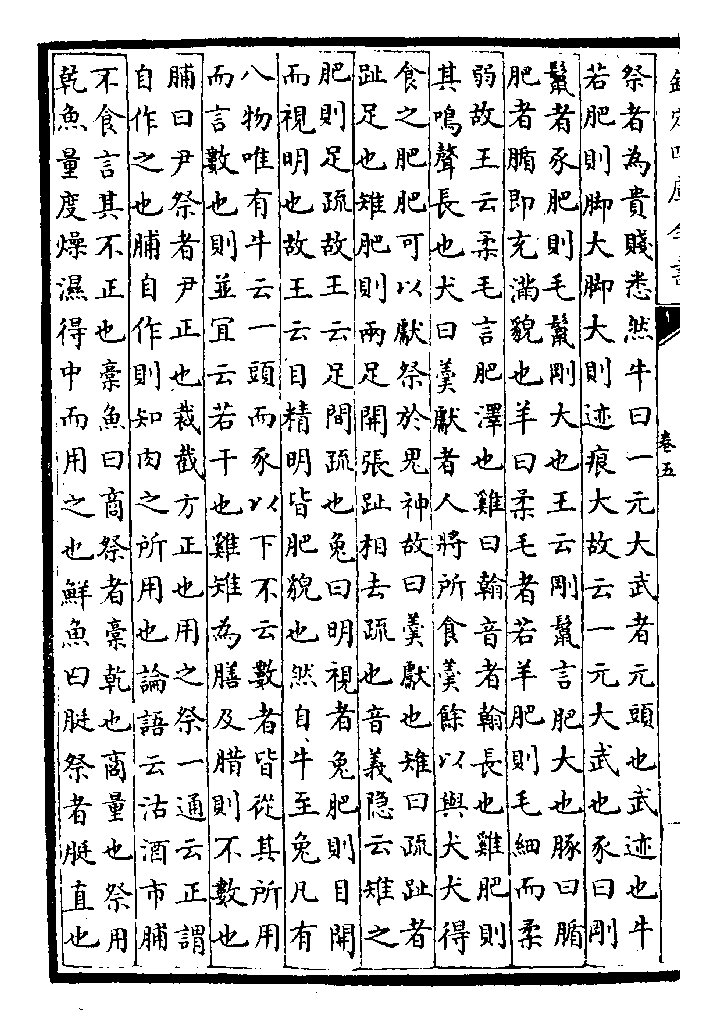 欽定四庫全書
卷五
祭者為貴賤悉然牛曰一元大武者元頭也武迹也牛
若肥則脚大脚大則迹痕大故云一元大武也豕曰剛
鬛者豕肥則毛鬛剛大也王云剛鬛言肥大也豚曰腯
肥者腯即充滿貌也羊曰柔毛者若羊肥則毛細而柔
弱故王云柔毛言肥澤也雞曰翰音者翰長也雞肥則
其鳴聲長也犬曰羮獻者人將所食羮餘以與犬犬得
食之肥肥可以獻祭於鬼神故曰羮獻也雉曰疏趾者
趾足也雉肥則兩足開張趾相去疏也音義隐云雉之
肥則足疏故王云足間疏也兔曰明視者兔肥則目開
而視明也故王云目精明皆肥貌也然自牛至兔凡有
八物唯有牛云一頭而豕以下不云數者皆從其所用
而言數也則並宜云若干也雞雉為膳及腊則不數也
脯曰尹祭者尹正也裁截方正也用之祭一通云正謂
自作之也脯自作則知肉之所用也論語云沽酒市脯
不食言其不正也槀魚曰商祭者槀乾也商量也祭用
乾魚量度燥濕得中而用之也鮮魚曰脡祭者脡直也